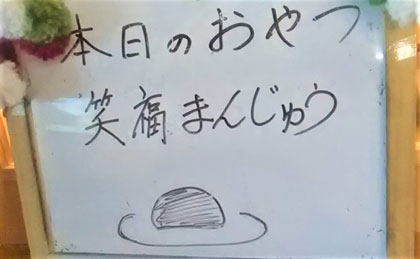 本日のおやつ
笑福まんじゅう